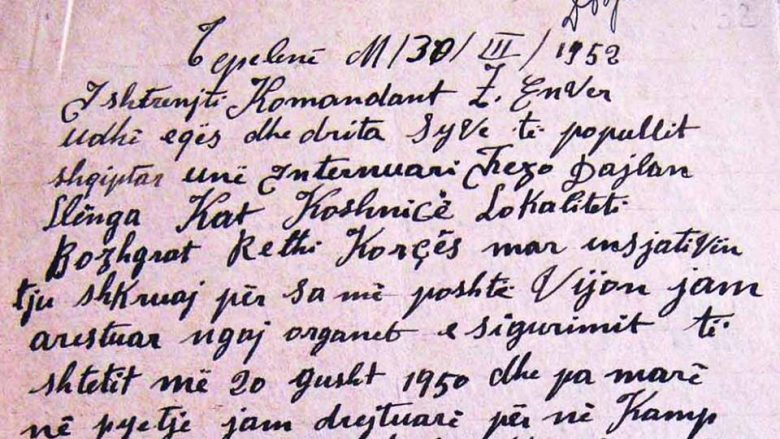 Tepelenë M/30/III/1952
I shtrenjti Komandant Z. Enver
udhi eqës dhe drita syve të popullit
shqiptar unë Internuari Dajlan
Kat Koshnicë Lokaliteti
Bozhgrat Rethi Korçës mar insjativën
tju shkruaj për sa më poshtë Vijon jam
arestuar ngaj organet e sigurimit të
shtetit më 20 gusht 1950 dhe pa marë
në pyetje jam drejtuarë për në Kamp